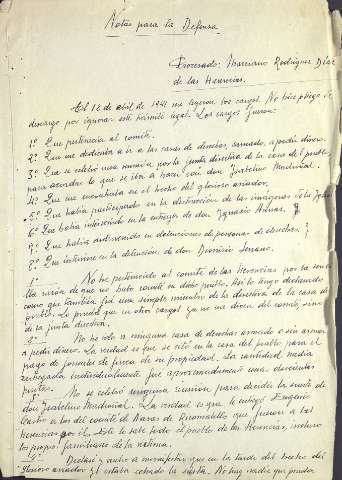 Notas para la Defensa
Procesado: Marciano Rodriguez Diaz
de las Herencias.
El 12 de abril de 1941 me leyeron los cargos. No hice pliego de
descargo por ignorar este trámite legal. Los cargos fueron:
1º Que pertenecía al comité.
2º Que me dedicaba a ir a las casas de derechas, armado, a pedir dinero.
3º Que se celebró una reunión por la junta directiva de la casa del pueblo
para acordar lo que se iba a hacer con don
4º Que me encontraba en el hecho del glorioso aviador.
5º Que había participado en la destrucción de las imágenes de la Iglesia
6º Que había intervenido en la de don Ignacio
7º Que había intervenido en detenciones de personas de derechas.
8º Que intervine en la detención de don Dionisio Serrano.
1º No he pertenecido al comité de las Herencias por la sencilla
razón de que no hubo comité en dicho pueblo. Así lo tengo declarado
como que también fui una simple miembro de la directiva de la casa del
pueblo. La prueba que en otros cargos ya no me dicen del comité, sino
de la junta directiva.
2º No he ido a ninguna casa de derechas armado o sin armas
a pedir dinero. La verdad es que se citó en la casa del pueblo para el
pago de jornales de fincas de su propiedad. La cantidad media
entregada individualmente fue aproximadamente unas doscientas
pesetas.
3º No se celebró ninguna reunión para decidir la suerte de
don La verdad es que le entregó Eugenio
Castro a los del comité de Navas de Ricomalillo que fueron a las
Herencias por él. Esto lo sabe todo el pueblo de las Herencias, incluso
los propios familiares de la víctima.
4º Declaré y vuelvo a manifestar que en la tarde del hecho del
glorioso aviador yo estaba cobrando la No hay nadie que pueda